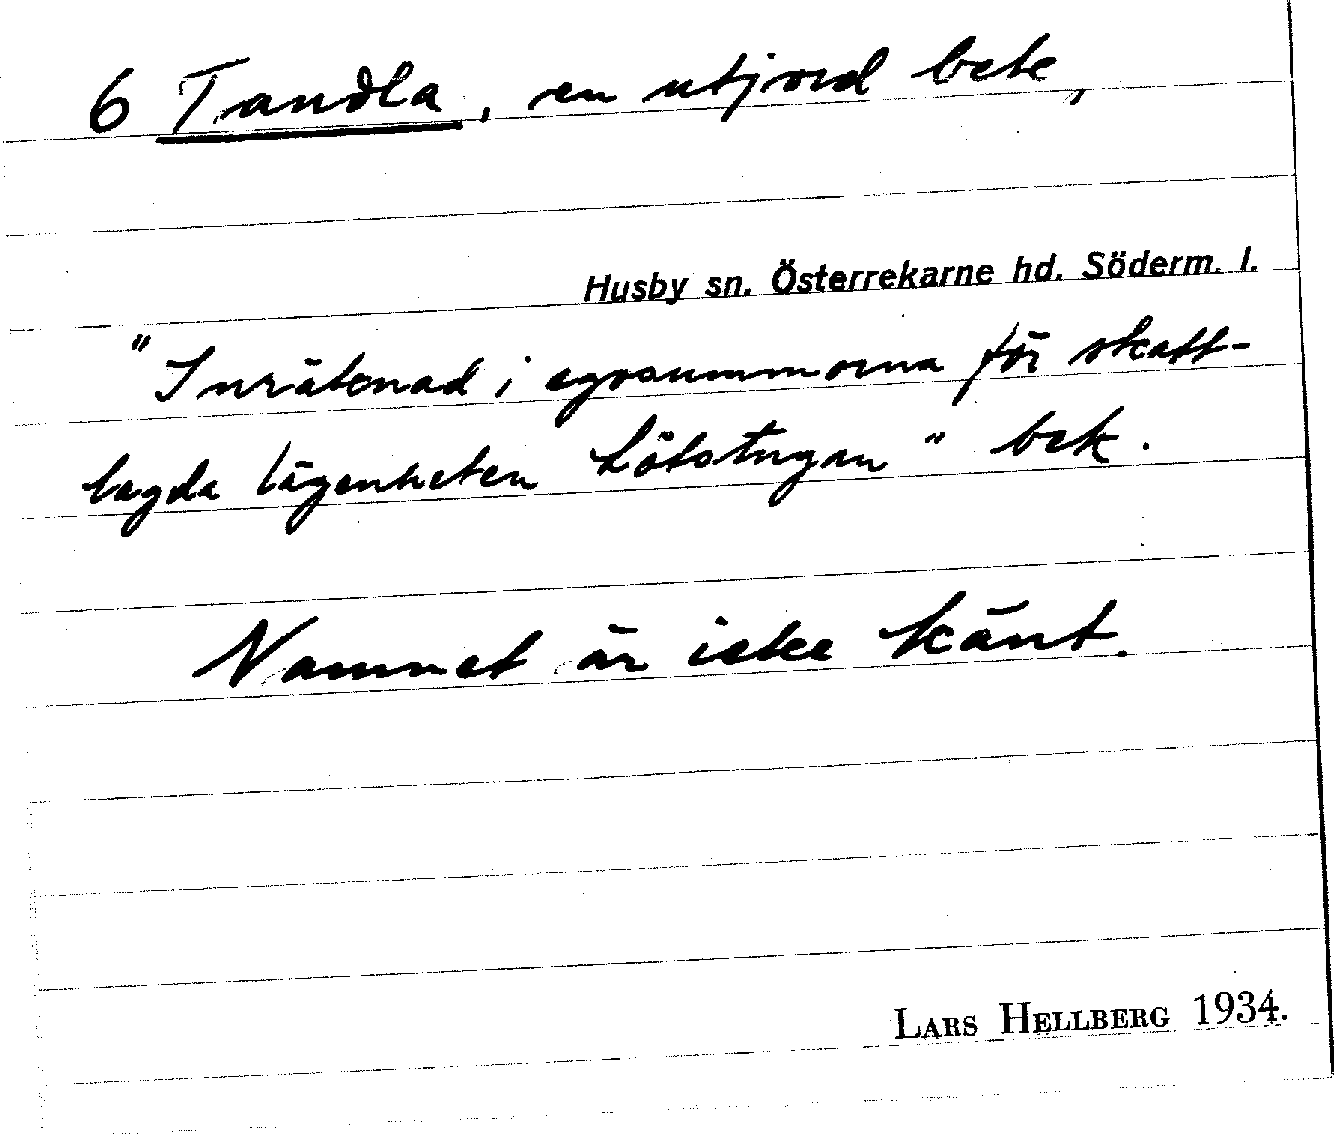 6 Tandla, en utjord bete,
Husby sn. Österrekarne hd. Söderm. l.
"Inräknad i egosummorna för skatt-
lagda lägenheten Lötstugan" bek.
Namnet är icke känt.
LARS HELLBERG 1934.